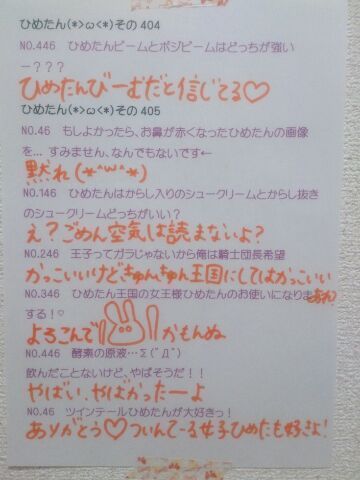 ひめたん(*>ω<*)その 404
NO.446　ひめたんビームとポジビームはどっちが強い
ー？？？
ひめたんびーむだと信じてる♡
ひめたん(*>ω<*)その 405
NO.46　もしよかったら、お鼻が赤くなったひめたんの画像
を… すみません、なんでもないです←
黙れ(*^w^*)
NO.146　ひめたんはからし入りのシュークリームとからし抜き
のシュークリームどっちがいい？
え？ごめん空気は読まないよ？
NO.246　王子ってガラじゃないから俺は騎士団長希望
かっこいいけどきゅんきゅん王国にしてはかっこいい
NO.346　ひめたん王国の女王様ひめたんのお使いになりま
する！♡
よろこんで かもんぬ
NO.446　酵素の原液…Σ(ﾟДﾟ)
飲んだことないけど、やばそうだ！！
やばい、やばかったーよ
NO.46　ツインテールひめたんが大好きっ！
ありがとう♡ついんてーる女子ひめたも好きよ！